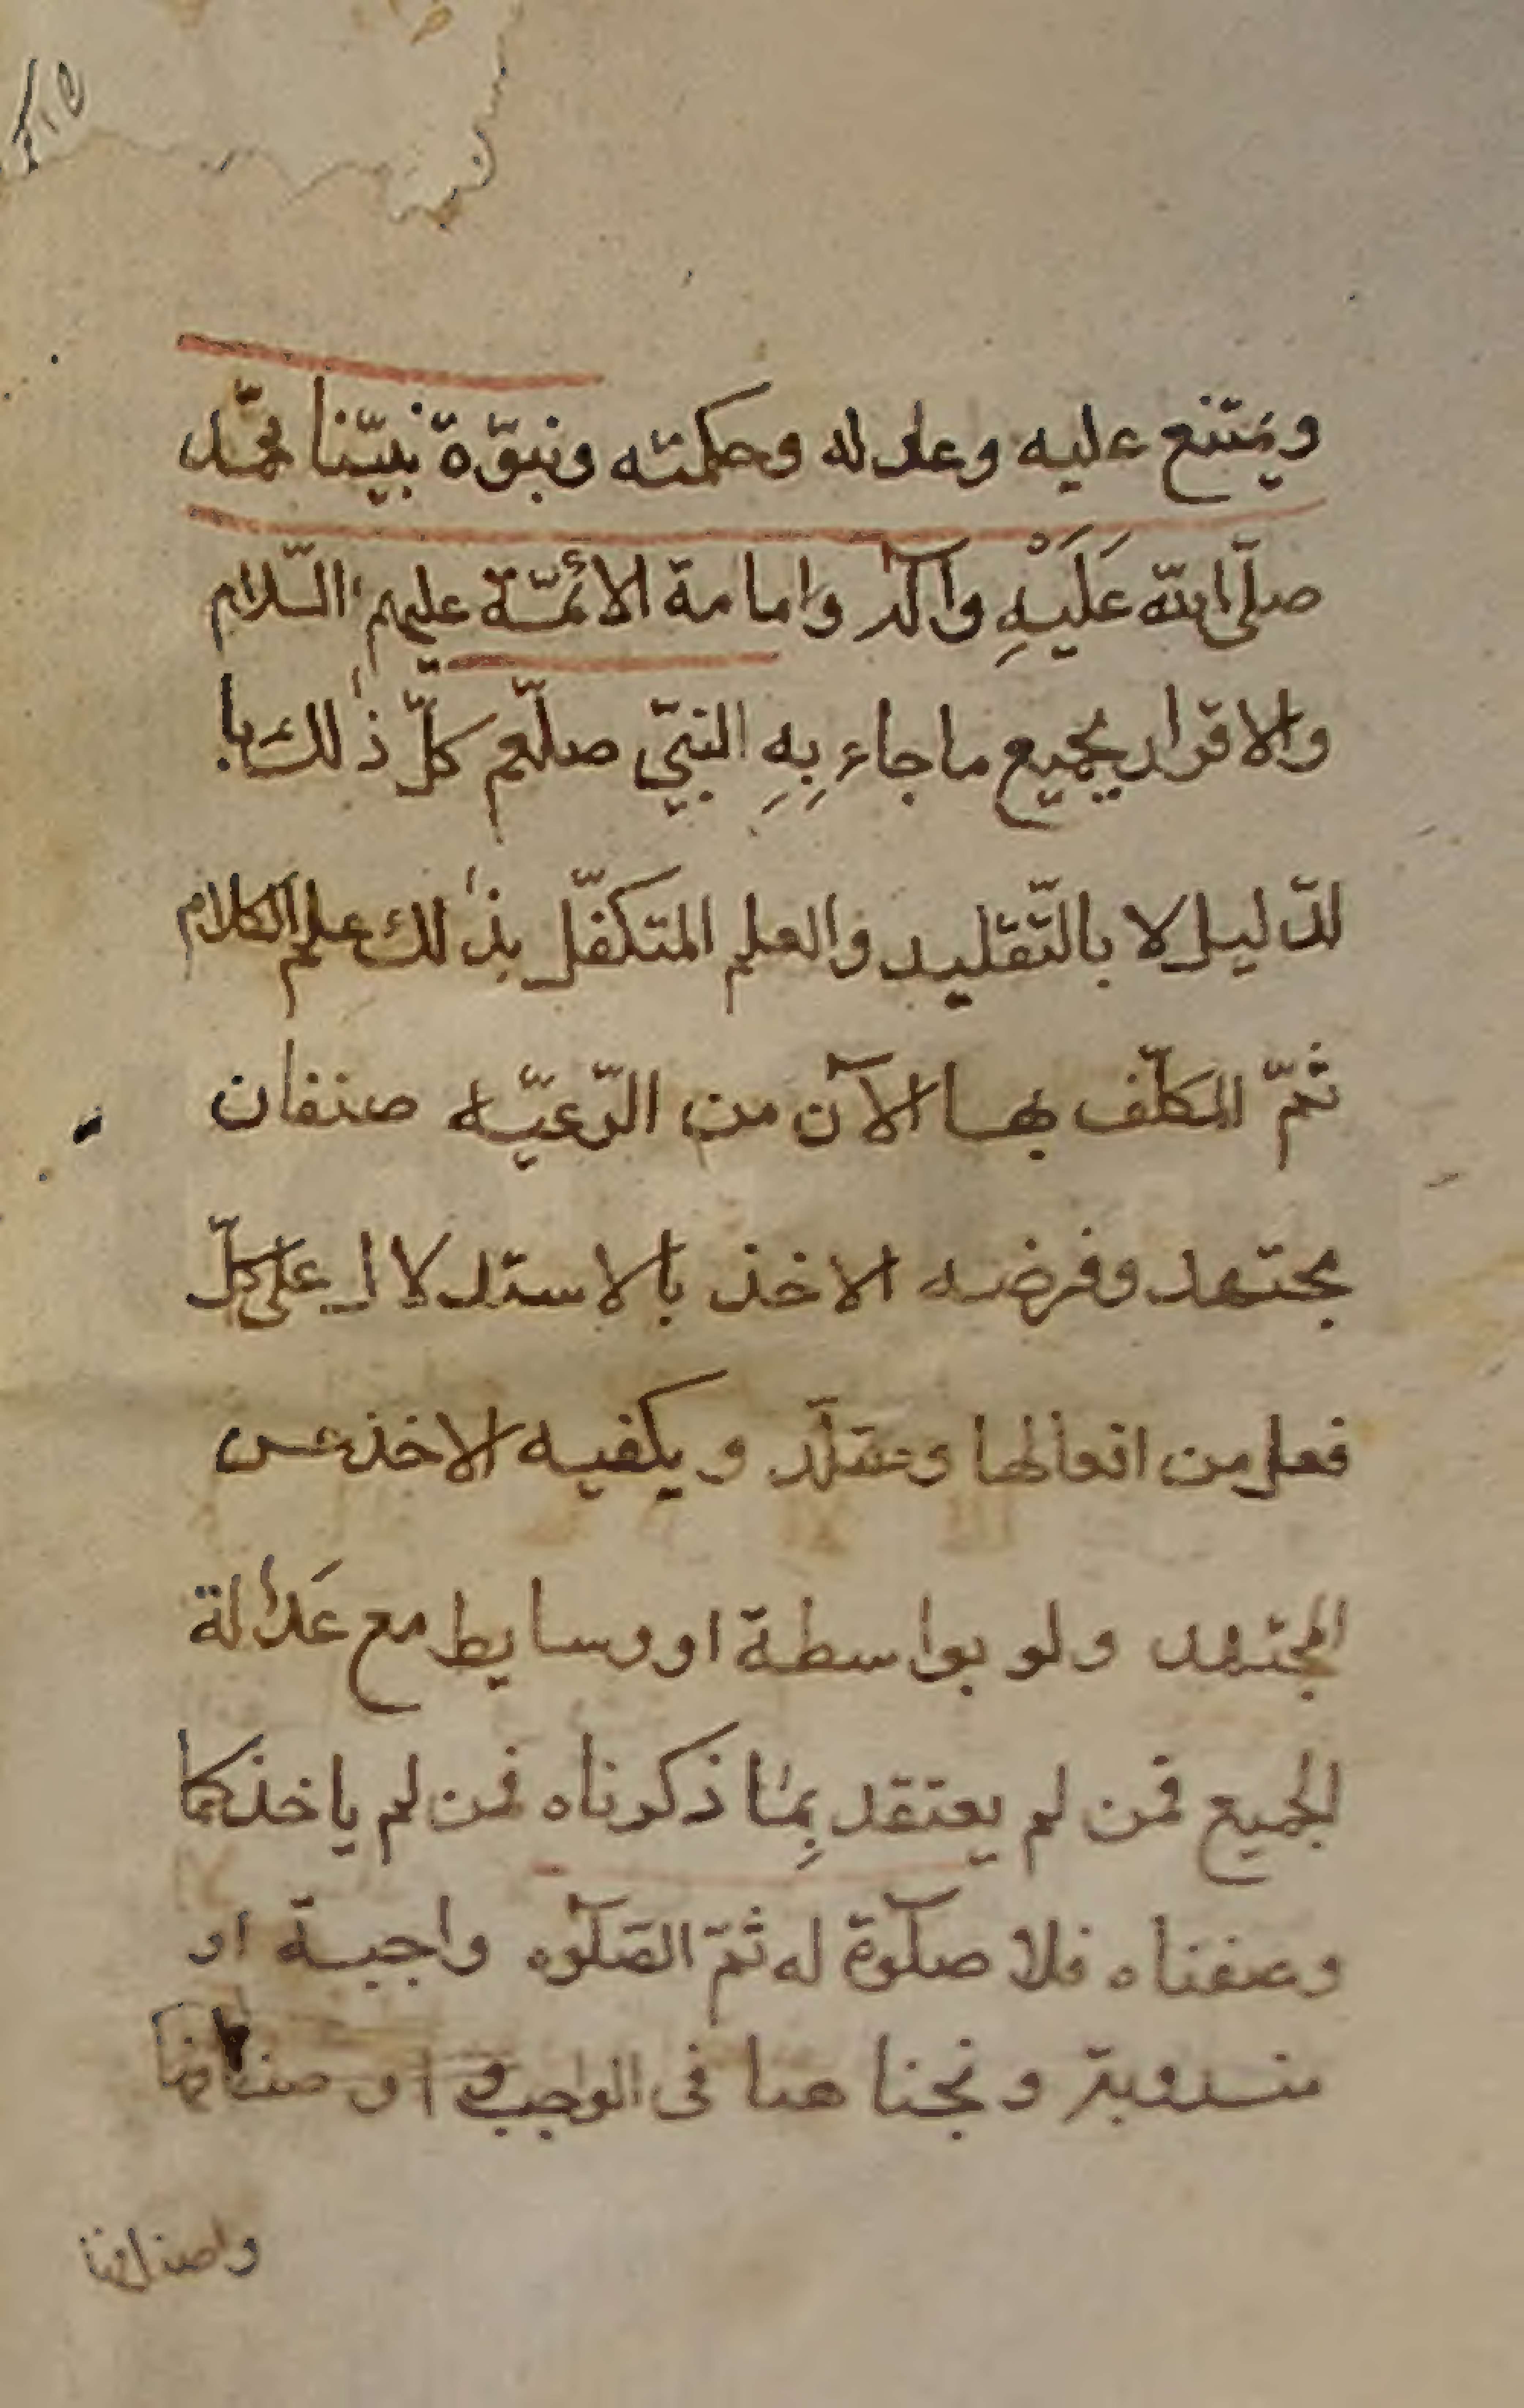 ويمتنع عليه وعدله وحكمته ونبوّة نبيّنا محمّد
صلّى الله عَلَيْهِ وآله وامامة الأئمّة عليهم السّلام
والاقرار بجميع ما جاء بِهِ النبيّ صلّعم كلّ ذٰلك با
لدّليل لا بالتّقليد والعلم المتكفّل بذٰلك علم الكلام
ثمّ المكلّف بها الآن من الرّعيّه صنفان
مجتهد وفرضه الاخذ بالاستدلال على كلّ
فعل من افعالها ومقلّد ويكفيه الاخذ عن
المجتهد ولو بواسطة او وسايط مع عَدالة
الجميع فمن لم يعتقد بِمٰا ذكرناه فمن لم ياخذ كما
وصفناه فلا صلٓوة له ثمّ الصّلٓوه واجبة او
مندوبة و نحثنا هنا فى الواجبة و
واصنافها